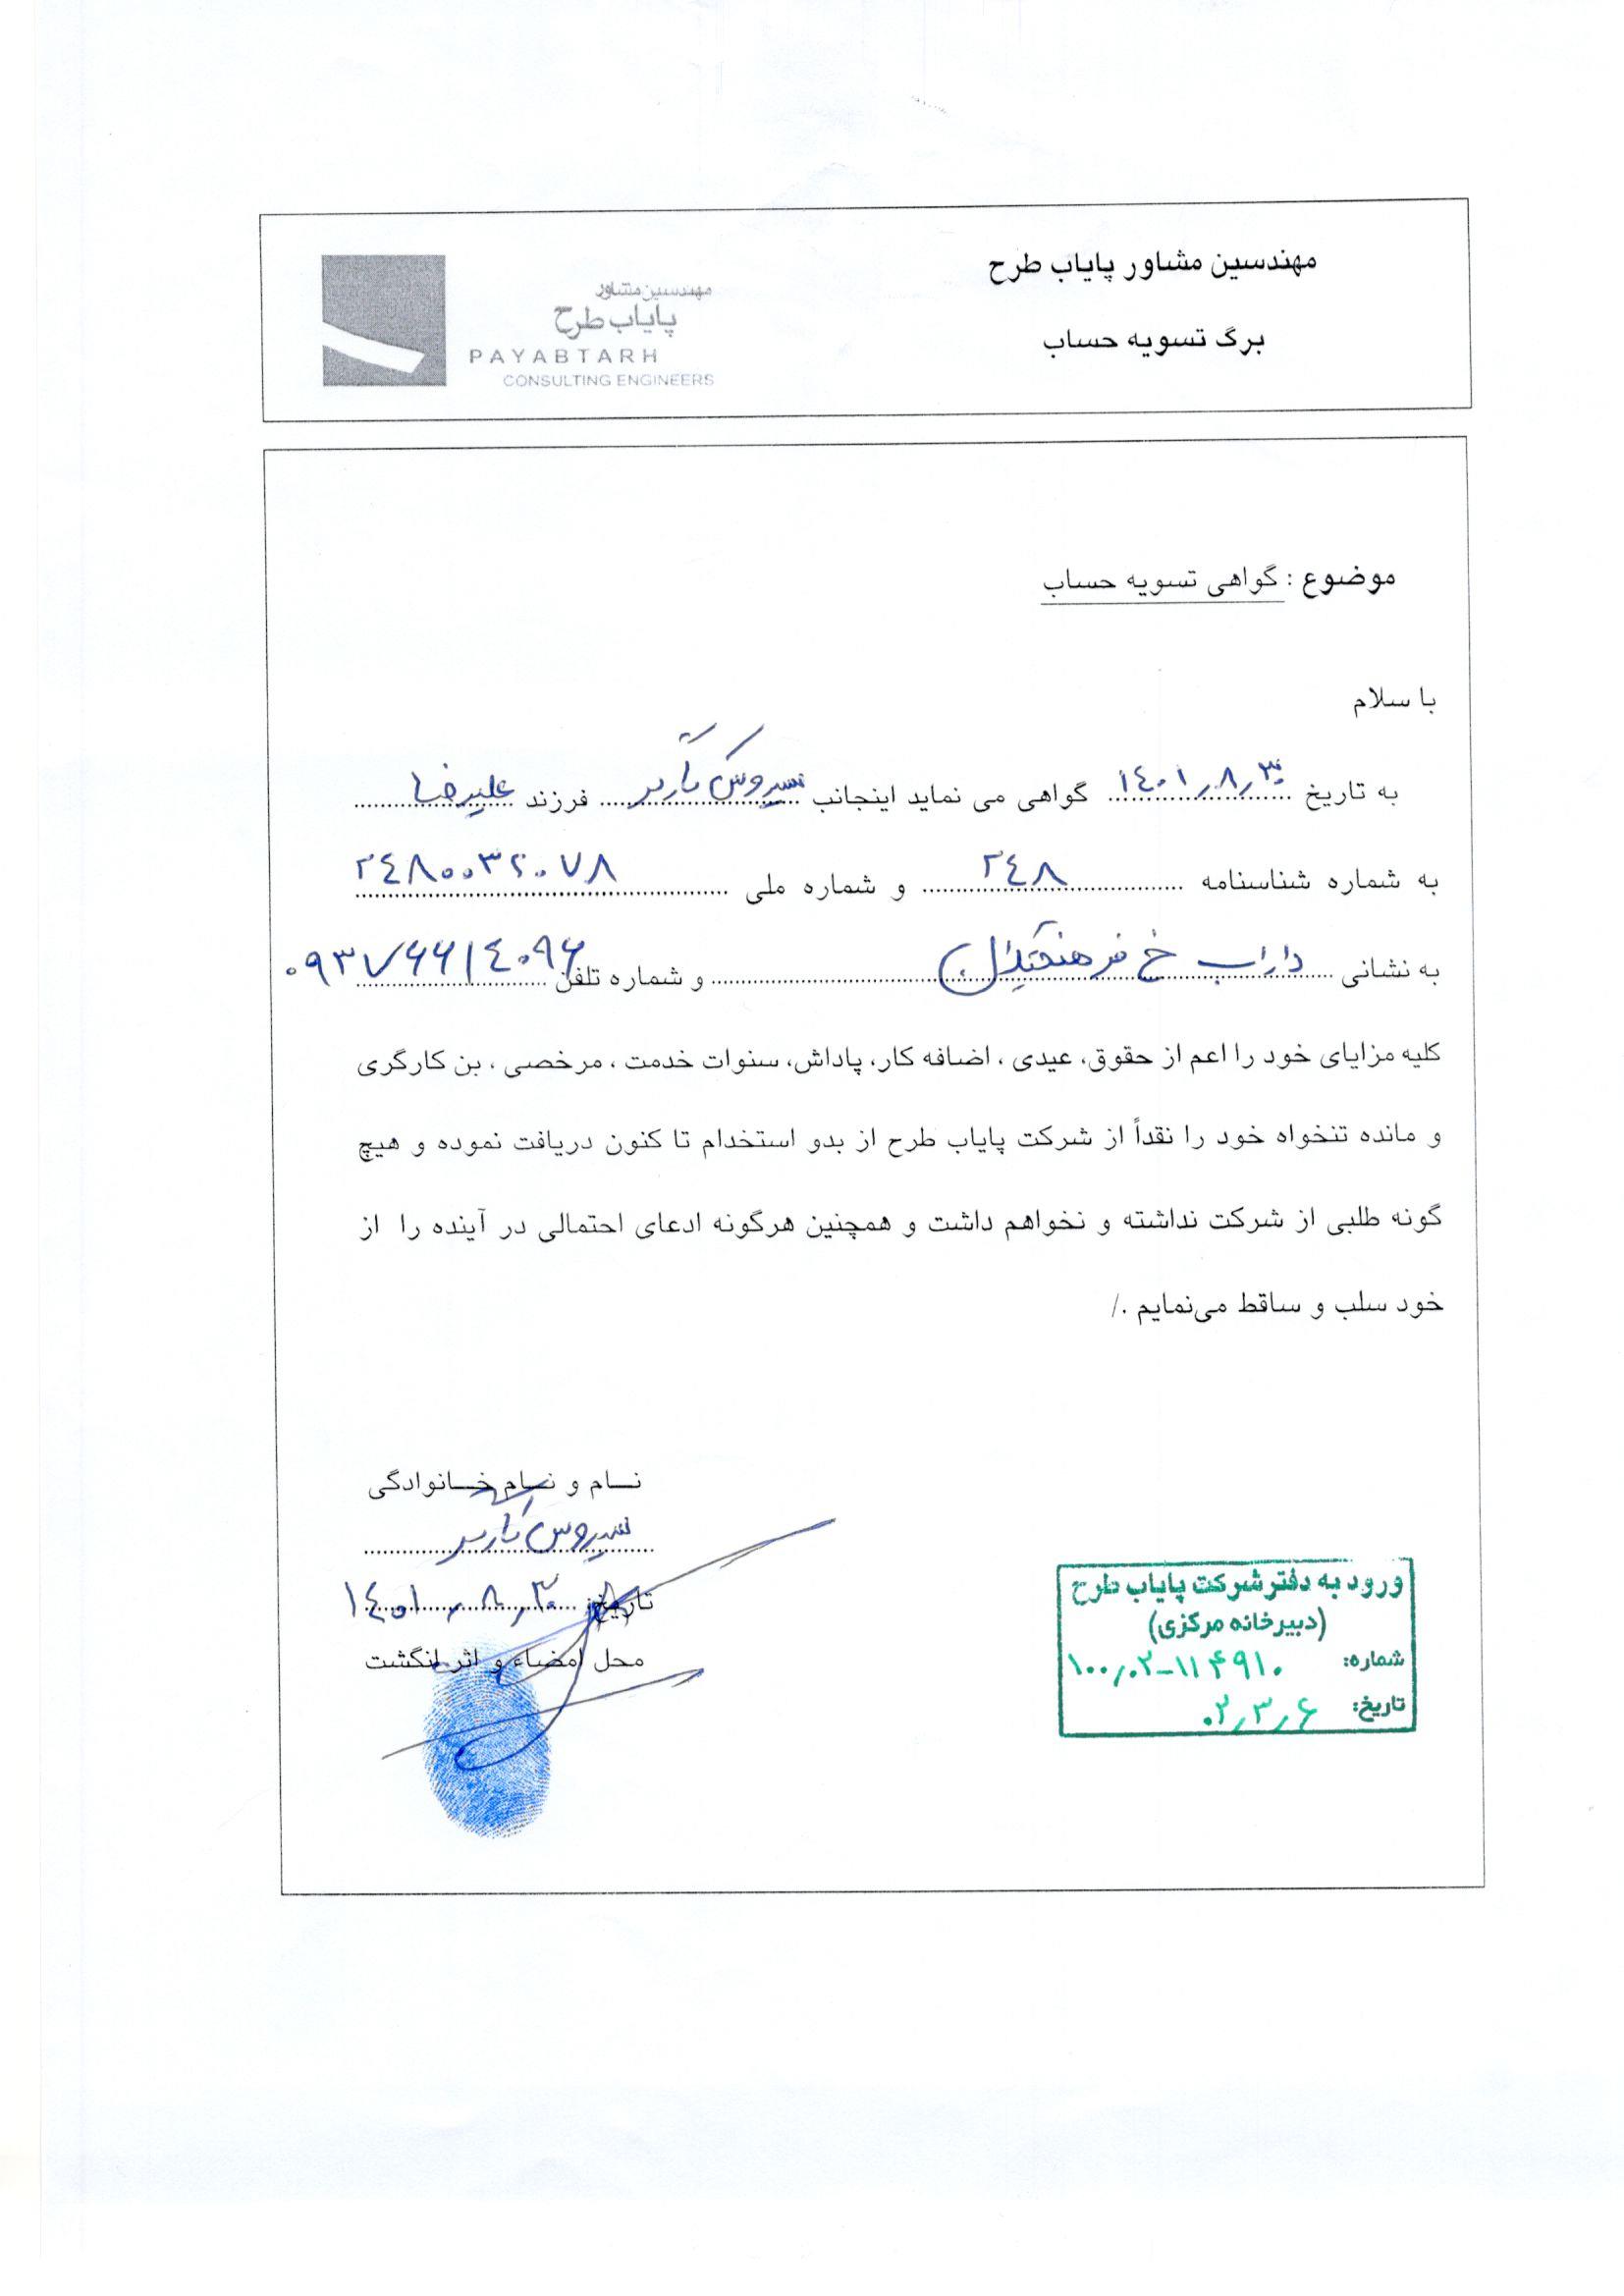 مهندسین مشاور پایاب طرح
برگ تسویه حساب
مهندسین مشاور
پایاب طرح
PAYABTARH
CONSULTING ENGINEERS
موضوع : گواهی تسویه حساب
با سلام
به تاریخ ۱۴۰۱٫۸٫۳۰ گواهی می نماید اینجانب سیروس فرزند علیرضا
به شماره شناسنامه ۲۴۸ و شماره ملی ۲۴۸۰۰۳۲۰۷۸
به نشانی داراب خ فرهنگیان و شماره تلفن ۰۹۳۷۶۶۱۴۰۹۶
کلیه مزایای خود را اعم از حقوق، عیدی ، اضافه کار، پاداش، سنوات خدمت ، مرخصی ، بن کارگری
و مانده تنخواه خود را نقداً از شرکت پایاب طرح از بدو استخدام تا کنون دریافت نموده و هیچ
گونه طلبی از شرکت نداشته و نخواهم داشت و همچنین هرگونه ادعای احتمالی در آینده را از
خود سلب و ساقط می‌نمایم ./
نام و نام خانوادگی
سیروس
تاریخ: ۱۴۰۱٫۸٫۳۰
محل امضاء و اثر انگشت
ورود به دفتر شرکت پایاب طرح
(دبیرخانه مرکزی)
شماره: ۱۰۰٫۰۲-۱۱۴۹۱۰
تاریخ: ۰۲٫۳٫۶